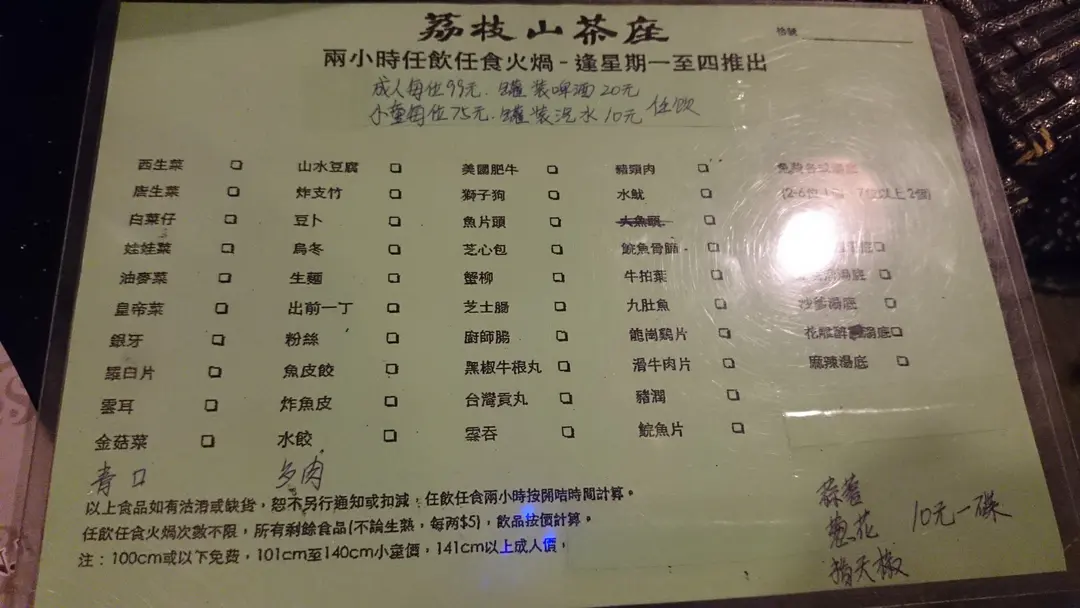 荔枝山茶座
兩小時任飲任食火煱-逢星期一至四推出
成人每位99元.罐装啤酒20元
小童每位75元.罐装汽水10元 任飲
西生菜 山水豆腐 美國肥牛 豬頸肉
唐生菜 炸支竹 獅子狗 水魷 (2-6位 7位以上2個)
白菜仔 豆卜 魚片頭 大魚頭
娃娃菜 烏冬 芝心包 鯇魚骨腩
油麥菜 生麵 蟹柳 牛拍葉 湯底
皇帝菜 出前一丁 芝士腸 九肚魚 沙爹湯底
銀牙 粉絲 廚師腸 龍崗鷄片 花雕醉 湯底
羅白片 魚皮餃 黑椒牛根丸 滑牛肉片 麻辣湯底
雲耳 炸魚皮 台灣貢丸 豬潤
金菇菜 水餃 雲吞 鯇魚片
青口 多肉
以上食品如有沽清或缺貨,恕不另行通知或扣減,任飲任食兩小時按開咭時間計算。
任飲任食火煱次數不限,所有剩餘食品(不論生熟,每两$5),飲品按價計算。
注:100cm或以下免費,101cm至140cm小童價,141cm以上成人價,
蒜蓉
蔥花 10元一碟
指天椒